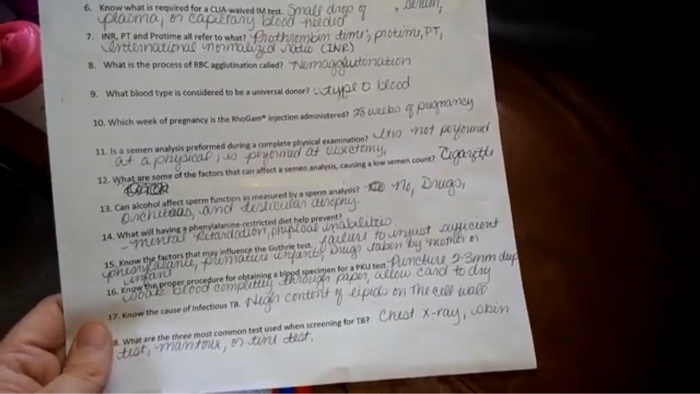 6. Know what is required for a CLIA-waived IM test. Small drop of serum,
plasma, or capillary blood needed
7. INR, PT and Protime all refer to what? Prothrombin time, protime, PT,
international normalized ratio (INR)
8. What is the process of RBC agglutination called? Hemagglutination
9. What blood type is considered to be a universal donor? type O blood
10. Which week of pregnancy is the RhoGam® injection administered? 28 weeks of pregnancy
11. Is a semen analysis preformed during a complete physical examination? not performed
at a physical, is performed at vasectomy,
12. What are some of the factors that can affect a semen analysis, causing a low semen count? Cigarette
13. Can alcohol affect sperm function as measured by a sperm analysis? no, Drugs,
and testicular atrophy.
14. What will having a phenylalanine-restricted diet help prevent?
-mental retardation, physical
15. Know the factors that may influence the Guthrie test. failure to ingest sufficient
phenylalanine, premature infants, Drugs taken by mother or
infant
16. Know the proper procedure for obtaining a blood specimen for a PKU test. Puncture 2-3mm deep
soak blood completely through paper, allow card to dry
17. Know the cause of infectious TB. High content of lipids on the cell wall
8. What are the three most common test used when screening for TB? Chest x-ray, skin
test, mantoux, or tine test.